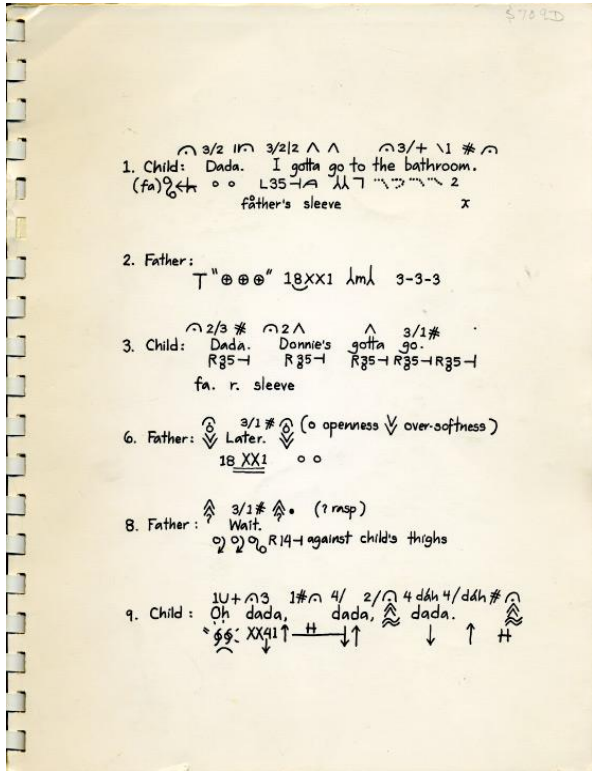 $7.09D
3/2 3/2|2 ∧ ∧ 3/+ \1 #
1. Child: Dada. I gotta go to the bathroom.
(fa) L35 2
father's sleeve x
2. Father:
T "⊕ ⊕ ⊕" 18XX1 3-3-3
2/3 # 2 ∧ ∧ 3/1#
3. Child: Dada. Donnie's gotta go.
R35⊣ R35⊣ R35⊣ R35⊣ R35⊣
fa. r. sleeve
3/1 # (o openness over-softness)
6. Father: Later.
18 XX1 o o
3/1# (? rasp)
8. Father: ? Wait. ?
R14⊣ against child's thighs
1U+ 3 1# 4/ 2/ 4 dáh 4/dáh #
9. Child: Oh dada, dada, dada.
XX41 ↑ H ↓↑ ↓ ↑ H